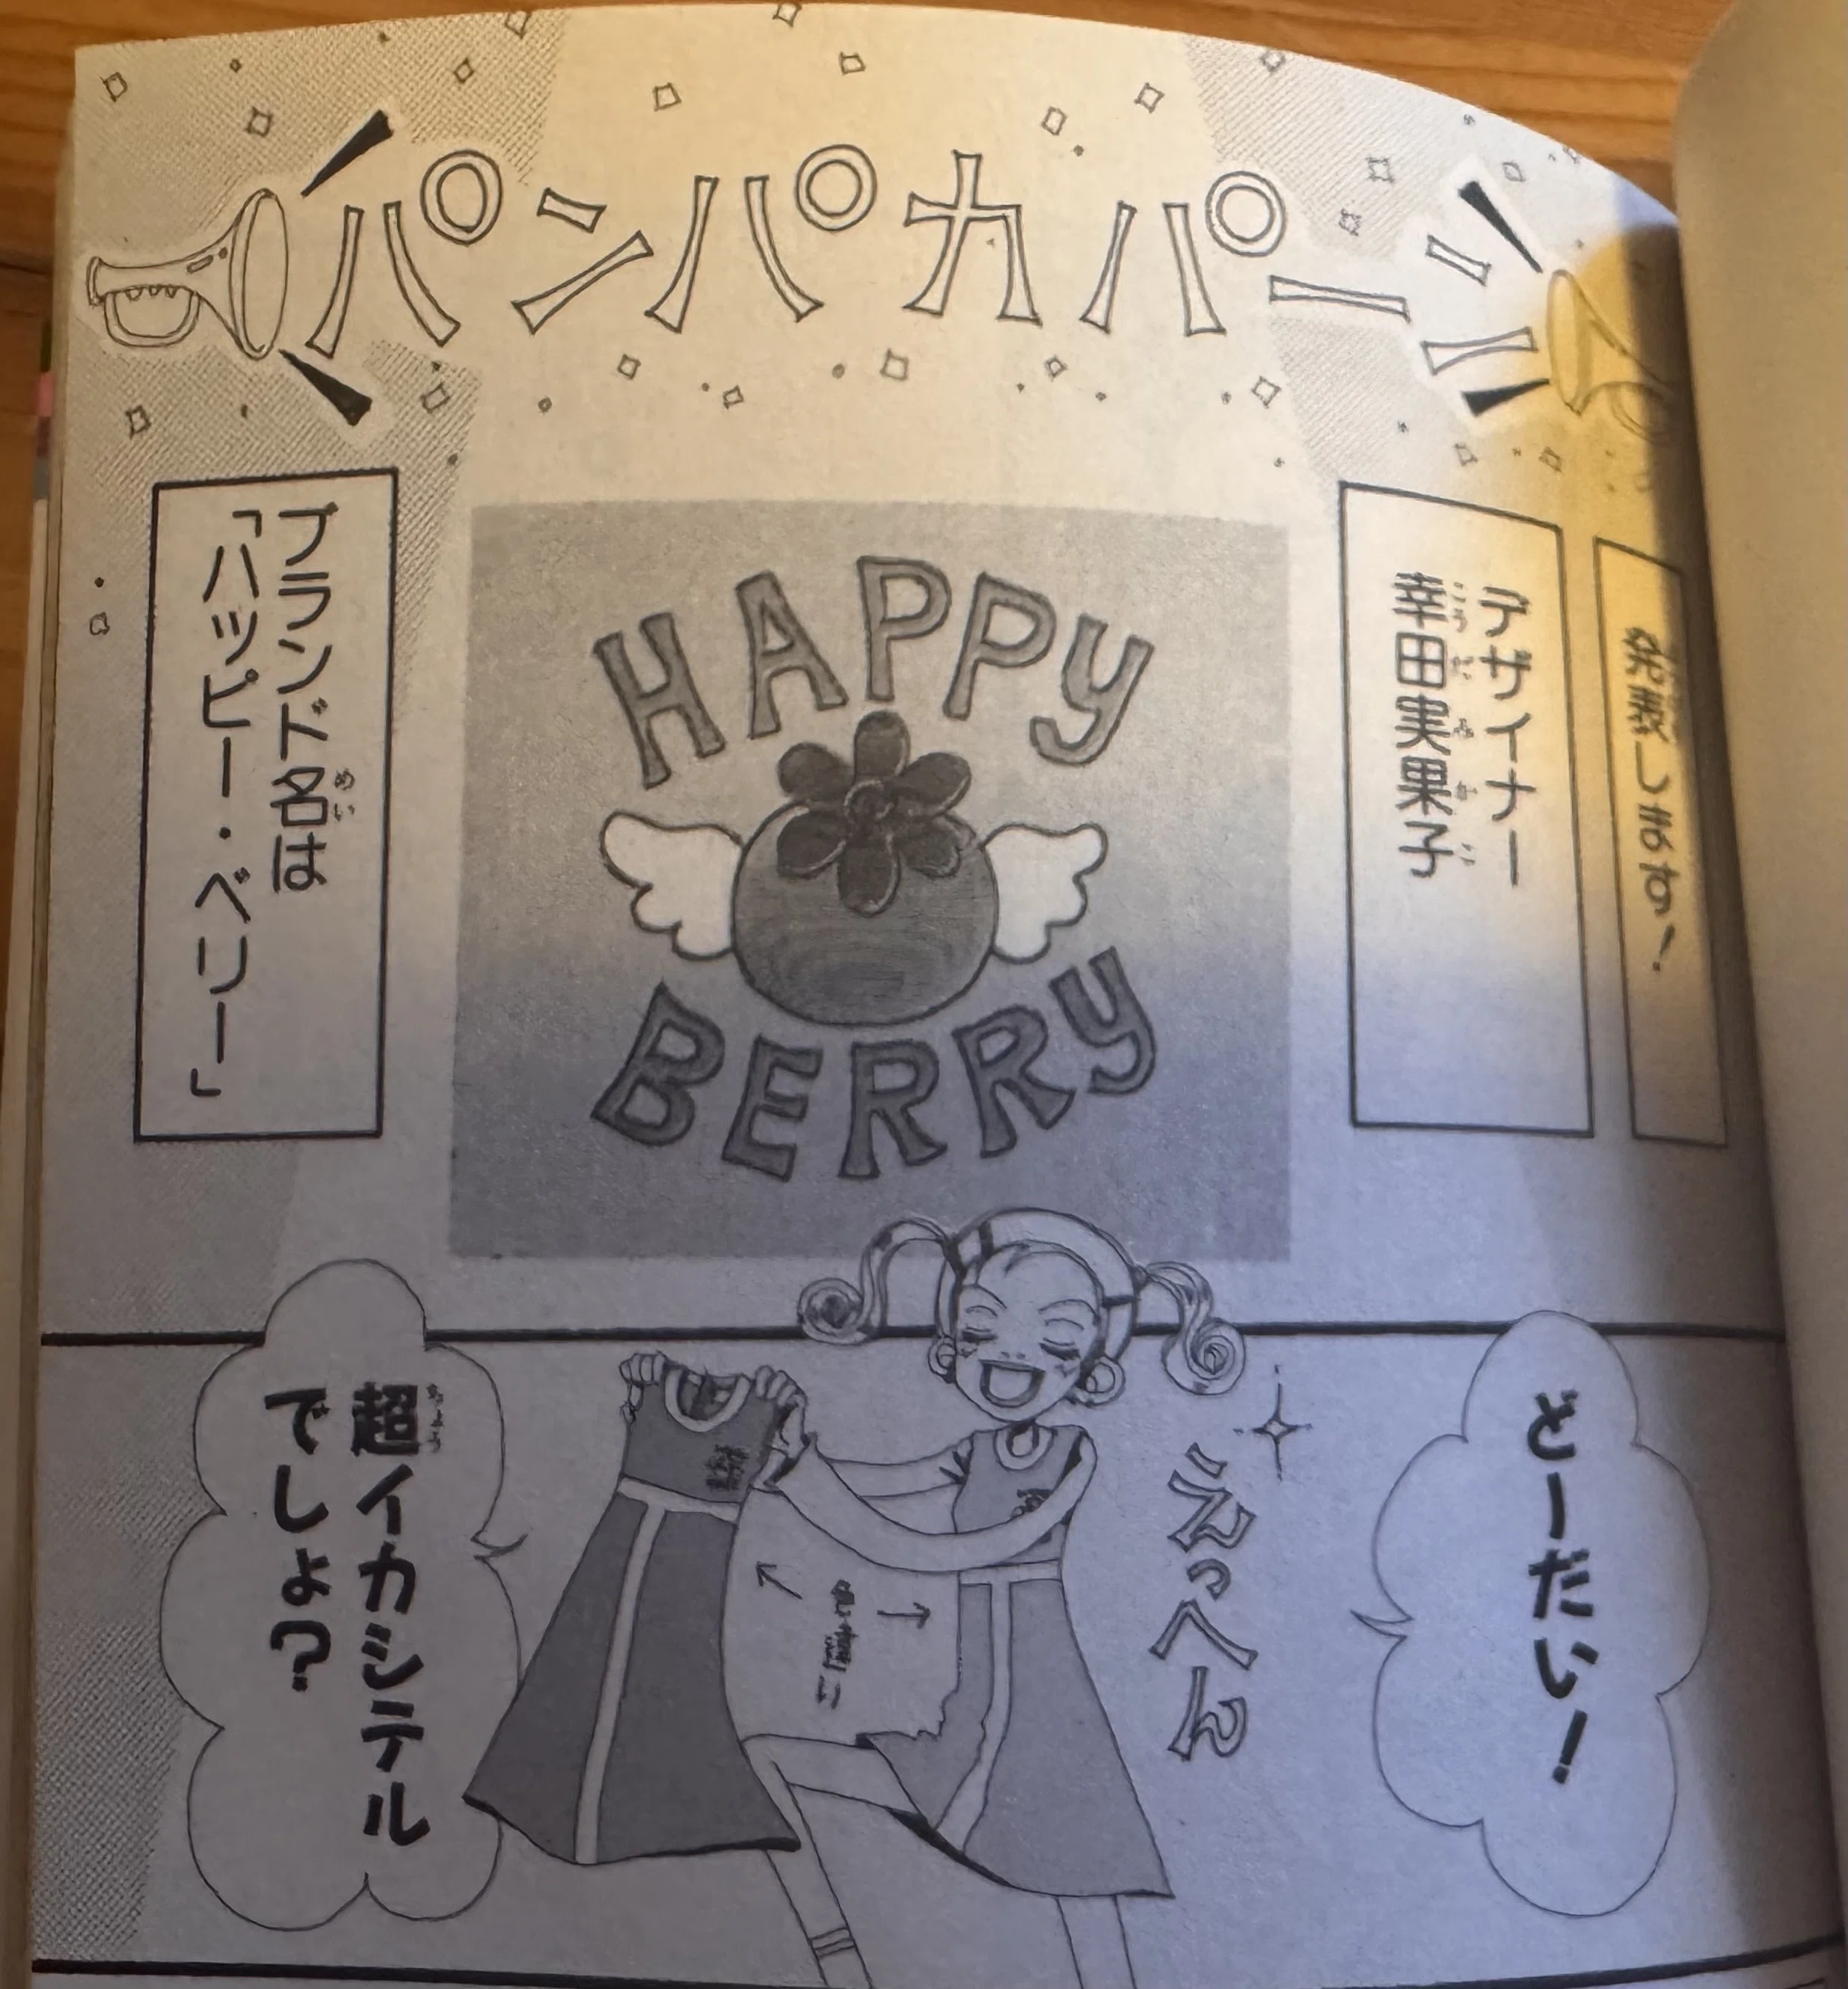 パンパカパーン
発表します！
デザイナー
幸田実果子
HAPPY
BERRY
ブランド名は
「ハッピー・ベリー」
どーだい！
えっへん
超イカシテル
でしょ？